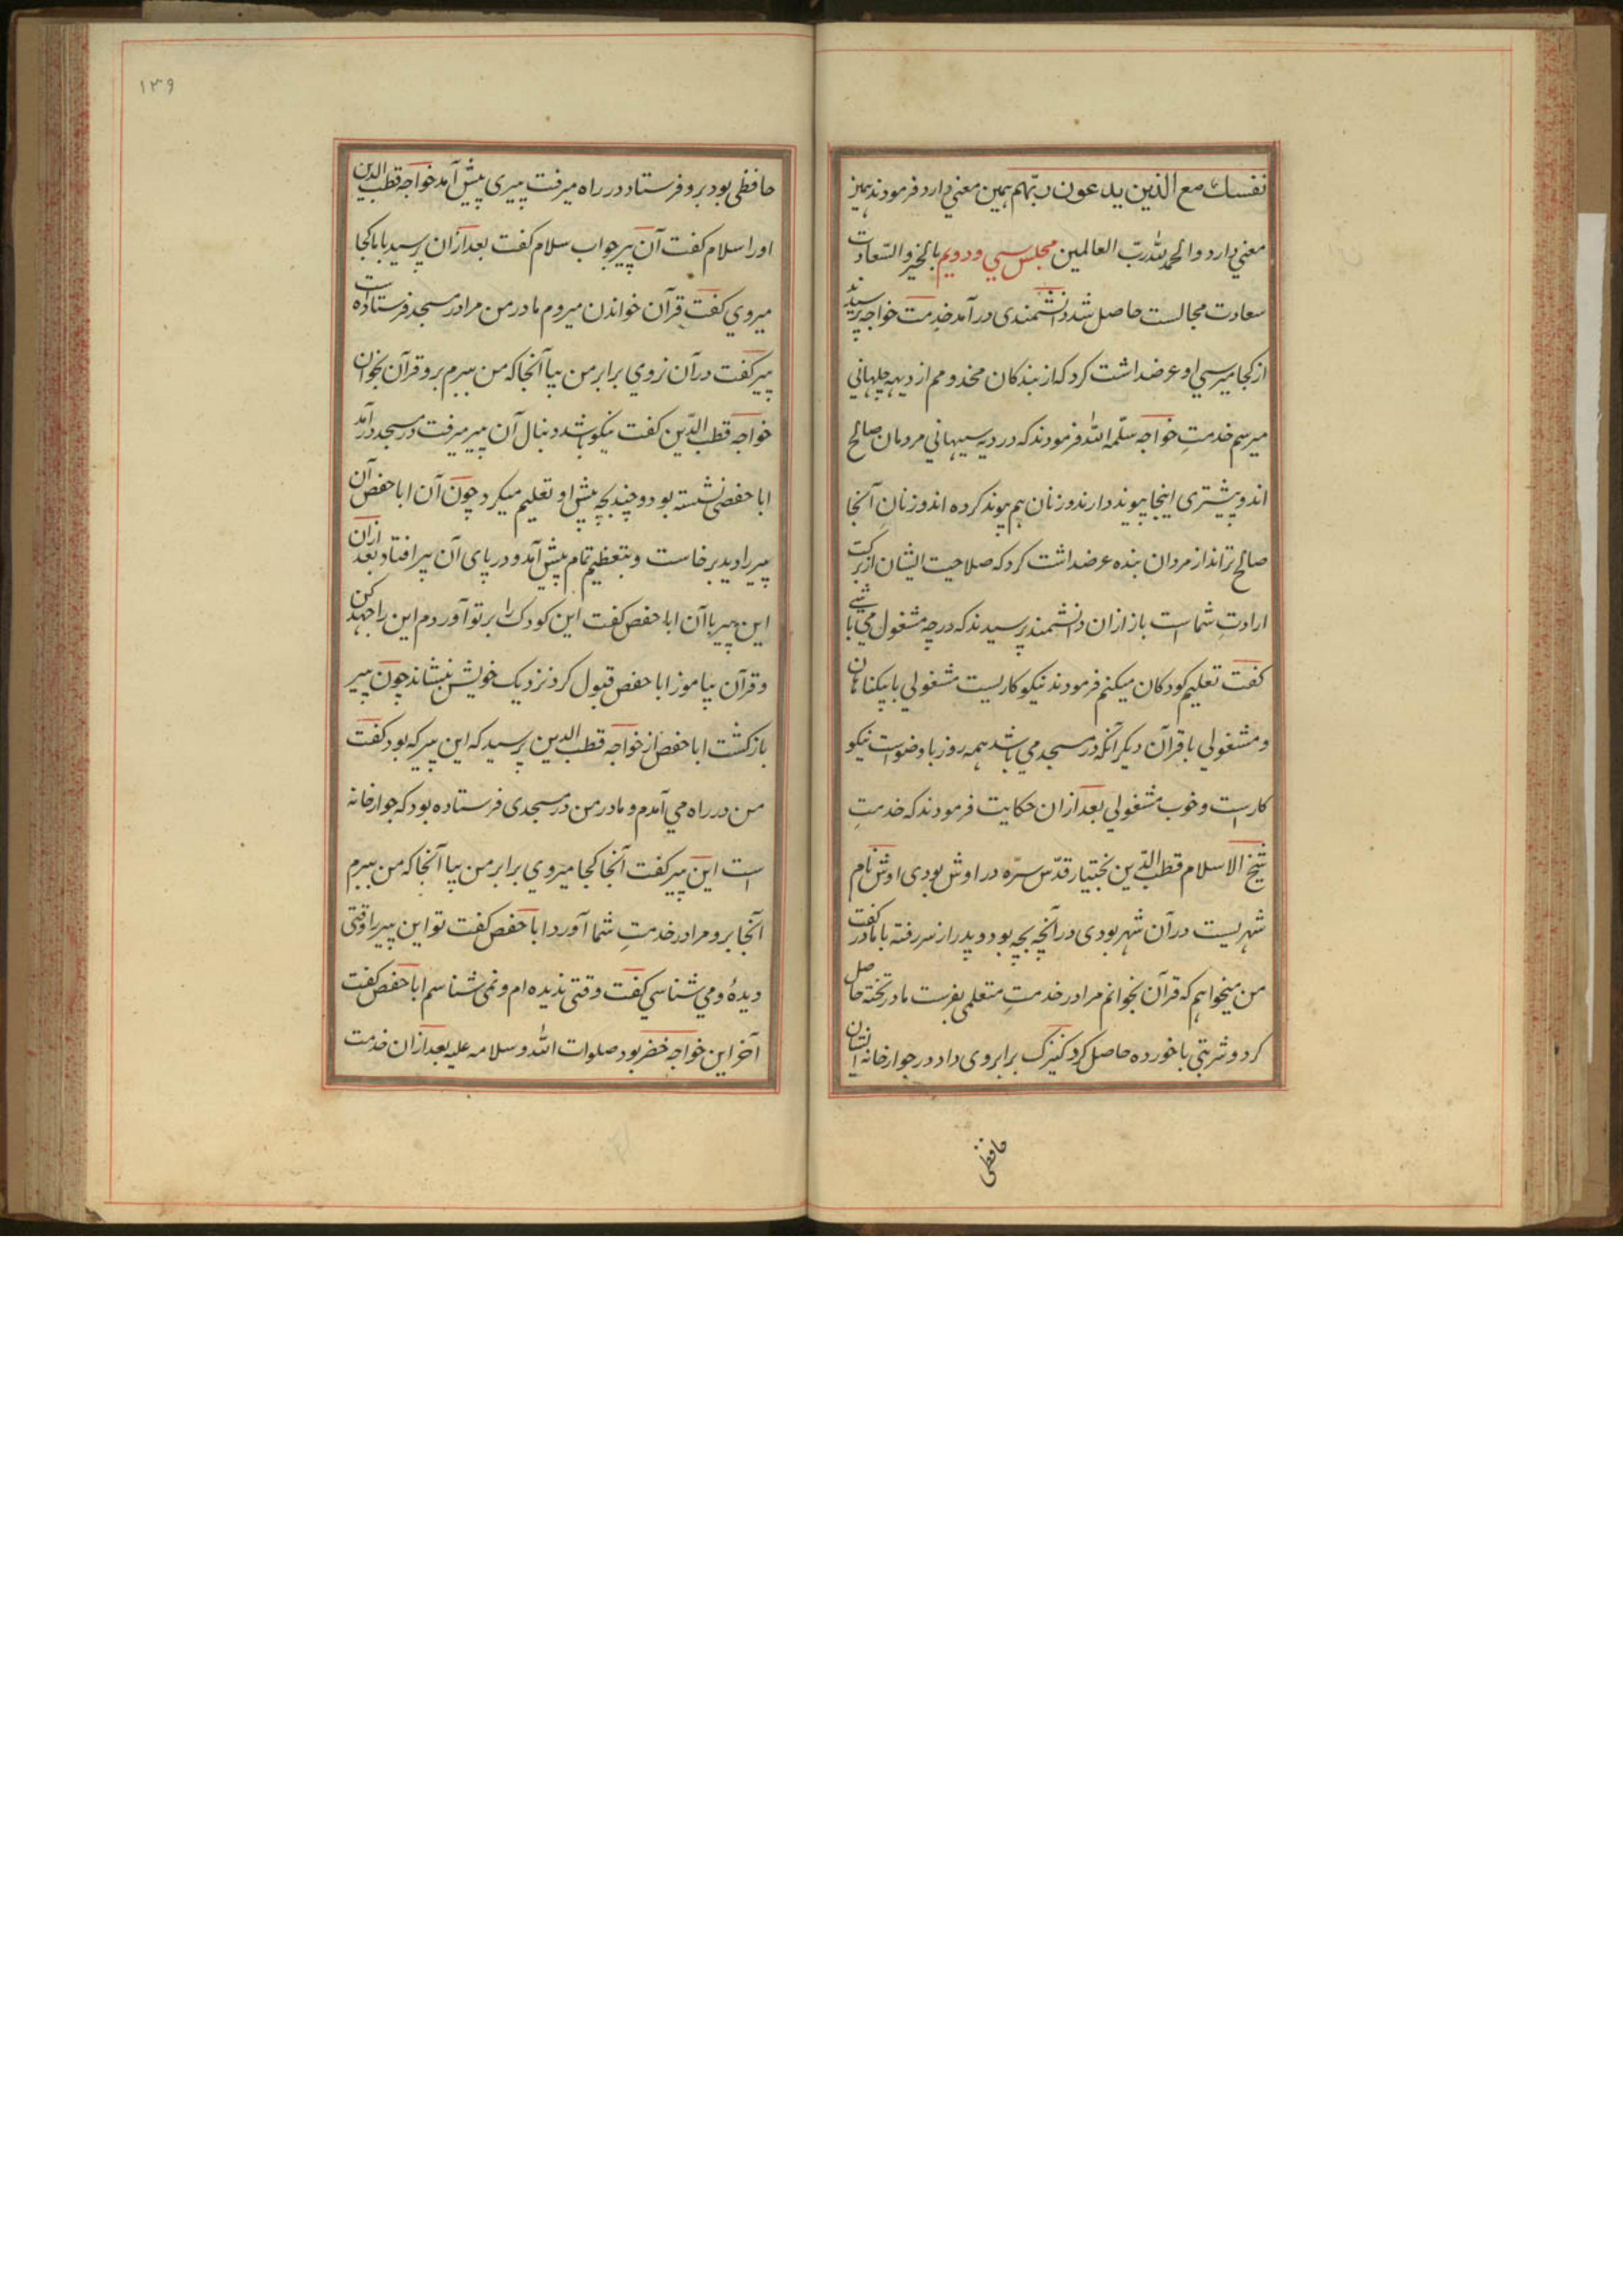 نفسك مع الذین یدعون ربّهم همین معنی دارد فرمودند همین
معنی دارد والحمدلله ربّ العالمین مجلس سی و دویم بالخیر والسّعادت
سعادت مجالست حاصل شد دانشمندی درآمد خدمت خواجه پرسیدند
از کجا میرسی او عرضداشت کرد که از بندکان مخدومم از دیهه
میرسم خدمتِ خواجه سلّمه الله فرمودند که در دیه سیهانی مردمان صالح
اند و پیشتری اینجا پیوند دارند و زنان هم پیوند کرده اند و زنانِ آنجا
صالح تر اند از مردان بنده عرضداشت کرد که صلاحیت ایشان از برکت
ارادتِ شماست باز ازان دانشمند پرسیدند که در چه مشغول می باشی
کفت تعلیم کودکان میکنم فرمودند نیکو کاریست مشغولی با بیکناهان
و مشغولی با قرآن دیکر آنکه در مسجد می باشد همه روز با وضوست نیکو
کارست و خوب مشغولی بعد ازان حکایت فرمودند که خدمتِ
شیخ الاسلام قطب الدّین بختیار قدّس سرّه در اوش بودی اوش نام
شهریست در آن شهر بودی در آنچه بچه بود و پدر از سر رفته با مادر کفت
من میخواهم که قرآن بخوانم مرا در خدمتِ متعلمی بفرست مادر تخته حاصل
کرد و شربتی با خورده حاصل کرد کنیزک برابر وی داد در جوار خانه ایشان
حافظی
۱۳۹
حافظی بود برو فرستاد در راه میرفت پیری پیش آمد خواجه قطب الدین
اورا سلام کفت آن پیر جواب سلام کفت بعد ازان پرسید بابا کجا
میروی کفت قرآن خواندن میروم مادر من مرا در مسجد فرستاده است
پیر کفت در آن روی برابر من بیا آنجا که من ببرم برو قرآن بخوان
خواجه قطب الدّین کفت نیکو باشد دنبال آن پیر میرفت در مسجد درآمد
ابا حفصی نشسته بود و چند بچه پیش او تعلیم میکرد چون آن ابا حفص آن
پیر را دید برخاست و بتعظیم تمام پیش آمد و در پای آن پیر افتاد بعد ازان
این پیر با آن ابا حفص کفت این کودک را بر تو آوردم این را جهد کن
و قرآن بیاموز ابا حفص قبول کرد نزدیک خویش بنشاند چون پیر
بازکشت ابا حفص از خواجه قطب الدین پرسید که این پیر که بود کفت
من در راه می آمدم و مادر من در مسجدی فرستاده بود که جوار خانه
است این پیر کفت آنجا کجا میروی برابر من بیا آنجا که من ببرم
آنجا برو مرا در خدمتِ شما آورد ابا حفص کفت تو این پیر را وقتی
دیدهٔ و می شناسی کفت وقتی ندیده ام و نمی شناسم ابا حفص کفت
آخر این خواجه خضر بود صلوات الله و سلامه علیه بعد ازان خدمت